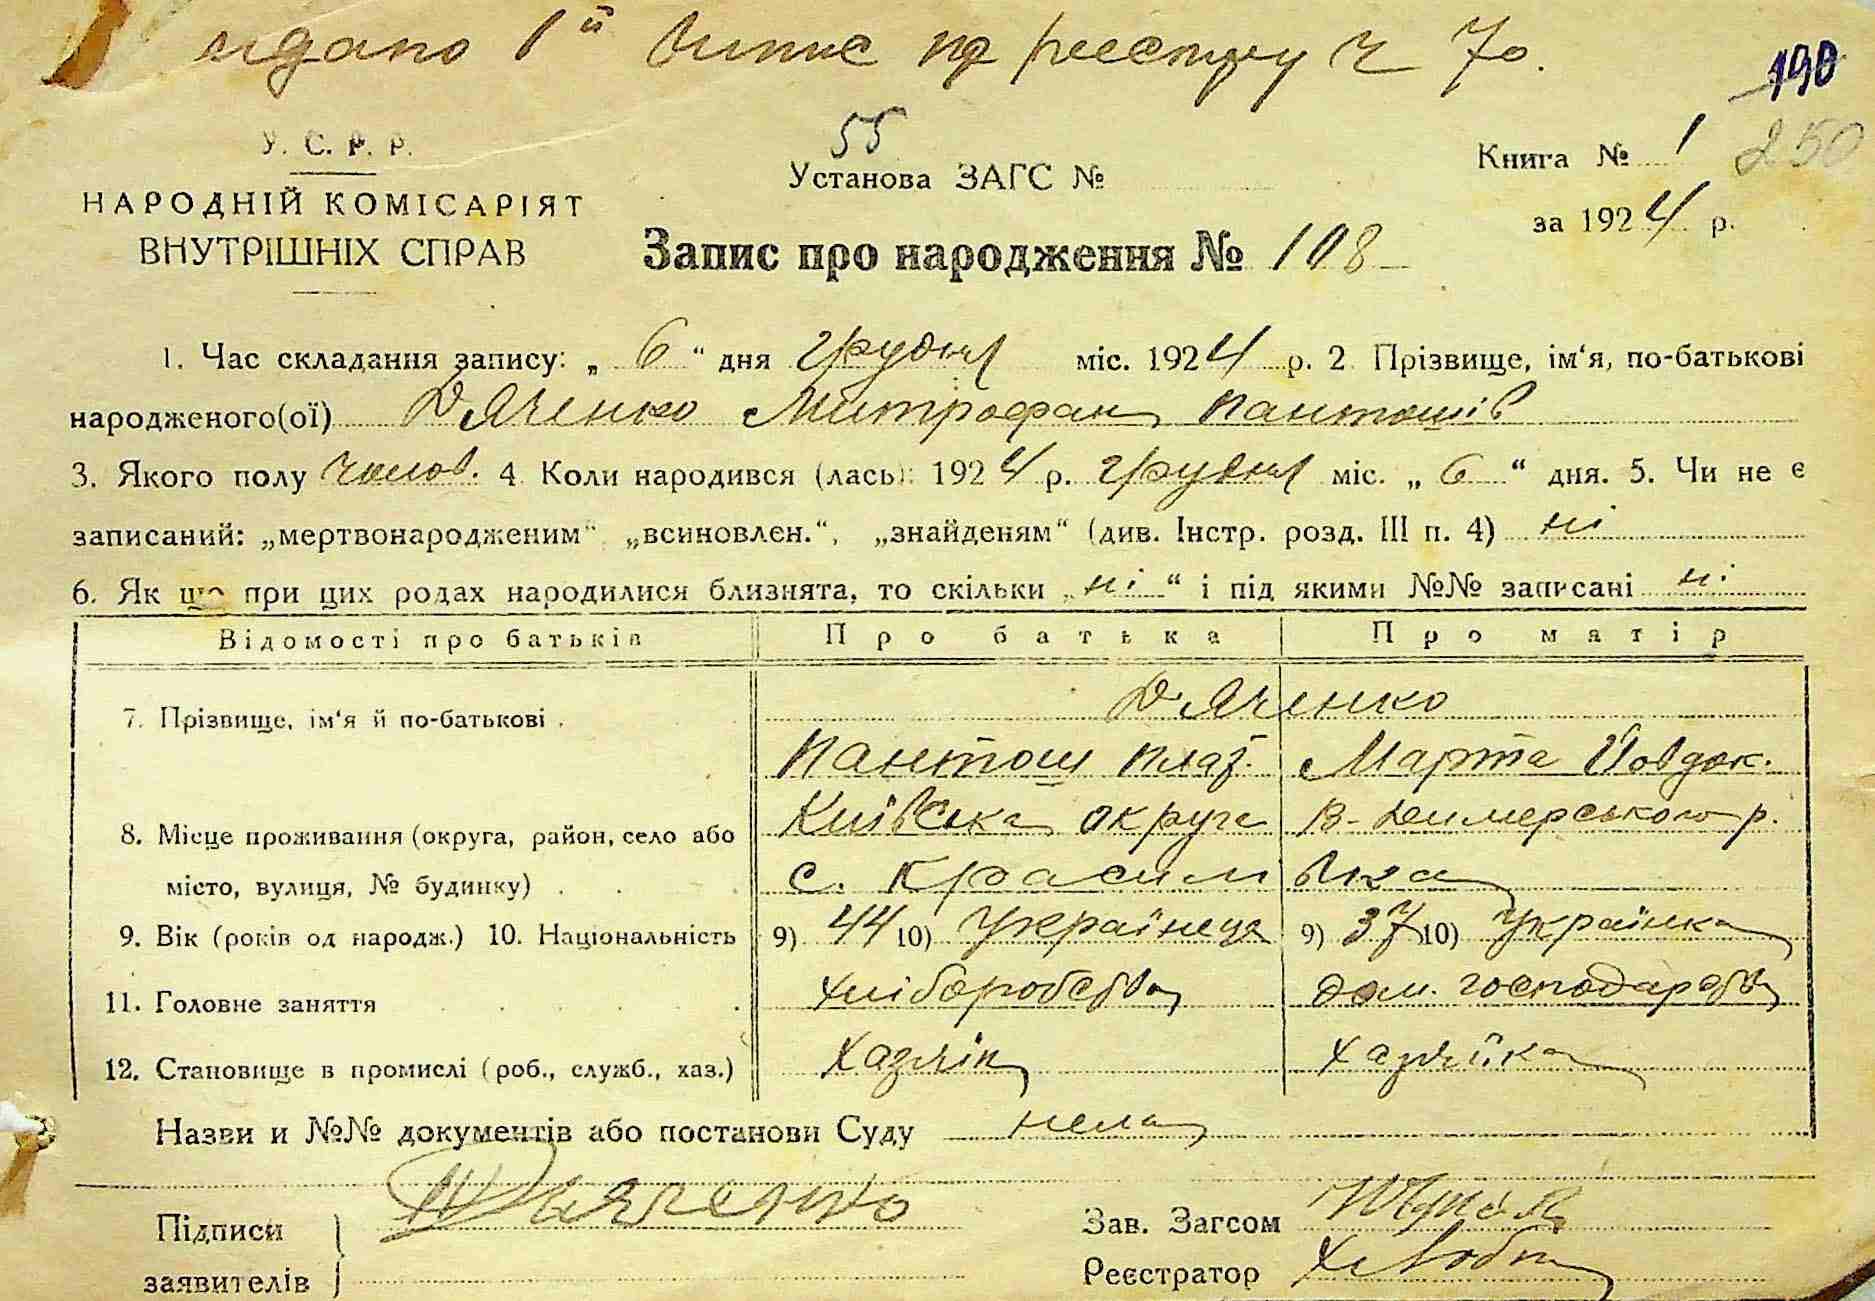 видано 1й випис по реєстру Ч 70.
190
250
У. С. Р. Р.
НАРОДНІЙ КОМІСАРІЯТ
ВНУТРІШНІХ СПРАВ
55
Установа ЗАГС №
Книга № 1
за 1924 р.
Запис про народження № 108
1. Час складання запису: „ 6 “ дня грудня міс. 1924 р. 2 Прізвище, ім‘я, по-батькові
народженого(ої) Дяченко Митрофан Пантошів
3. Якого полу чолов. 4. Коли народився (лась): 1924 р. грудня міс. „ 6 “ дня. 5. Чи не є
записаний: „мертвонародженим“ „всиновлен.“, „знайденям“ (див. Інстр. розд. III п. 4) ні
6. Як що при цих родах народилися близнята, то скільки „ ні “ і під якими №№ записані ні
Відомості про батьків Про батька Про матір
7. Прізвище, ім‘я й по-батькові . Дяченко
Пантош Плат. Марта Йовдок.
8. Місце проживання (округа, район, село або Київська округа В-Димерського р.
місто, вулиця, № будинку) . с. Красилівка
9. Вік (років од народж.) 10. Національність 9) 44 10) Українець 9) 37 10) Українка
11. Головне заняття хліборобство дом. господарство
12. Становище в промислі (роб., служб., хаз.) хазяїн хазяйка
Назви и №№ документів або постанови Суду нема
Підписи Дяченко Зав. Загсом
заявителів Реєстратор